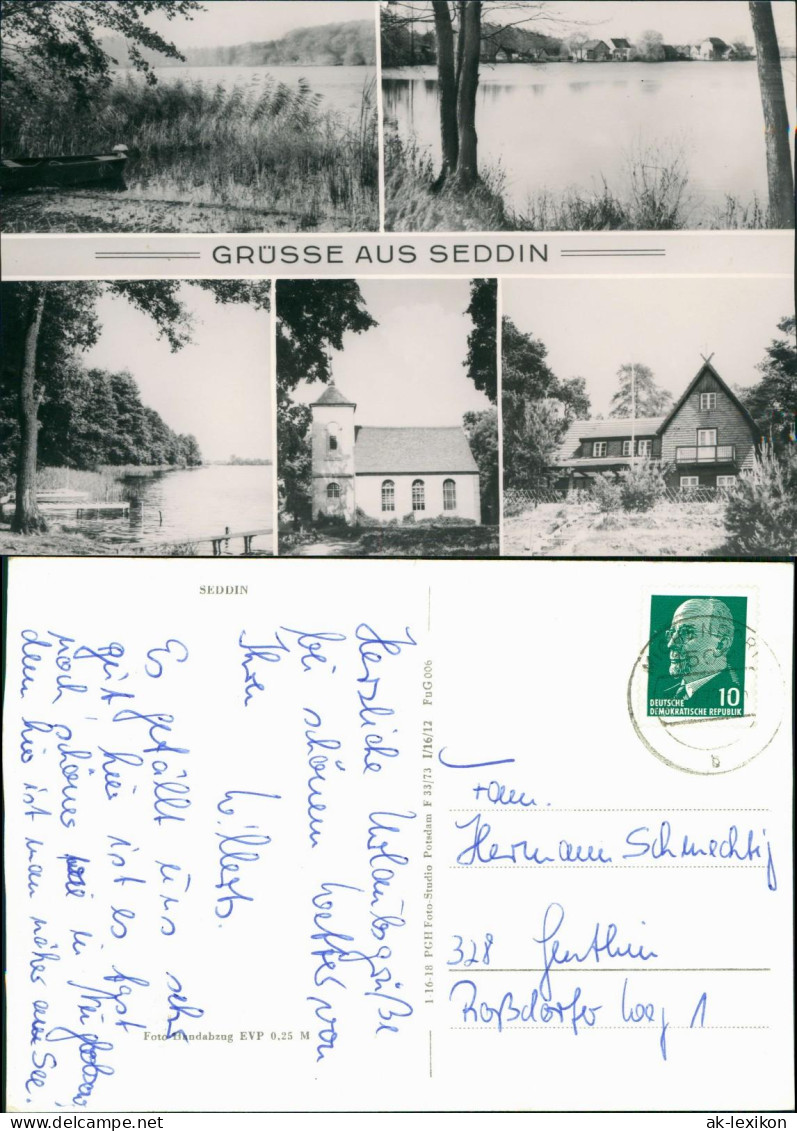 GRÜSSE AUS SEDDIN
SEDDIN
Herzliche Urlaubsgrüße
bei schönem Wetter von
Ihren
Willerts.
Es gefällt uns sehr
gut hier ist es fast
noch schöner wie in
denn hier ist man näher am See.
Foto-Handabzug EVP 0,25 M
1 16-18 PGH Foto-Studio Potsdam F 33/73 I/16/12 FuG 006
DEUTSCHE
DEMOKRATISCHE REPUBLIK
10
b
Fam.
Hermann Schmechtig
328 Genthin
Roßdorfer Weg 1
ak-lexikon